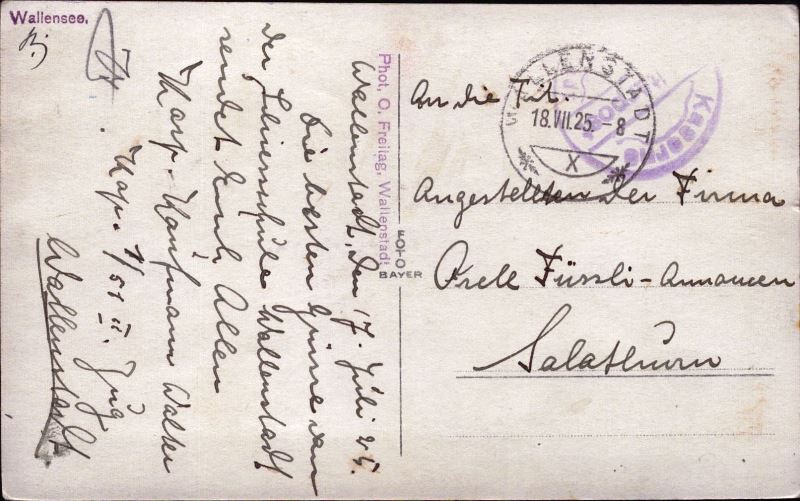 Wallensee.
Wallenstadt, den 17. Juli 25.
Die besten Grüsse von
der Schiesschule Wallenstadt
sendet Euch Allen
Korp. Kaufmann Walter
Kap. 1/51 II. Zug
Wallenstadt
Phot. O. Freitag, Wallenstadt
FOTO
BAYER
WALLENSTADT
18.VII.25.-8
X
Kaserne
An die Tit.
Angestellten der Firma
Orell Füssli-Annoncen
Solothurn